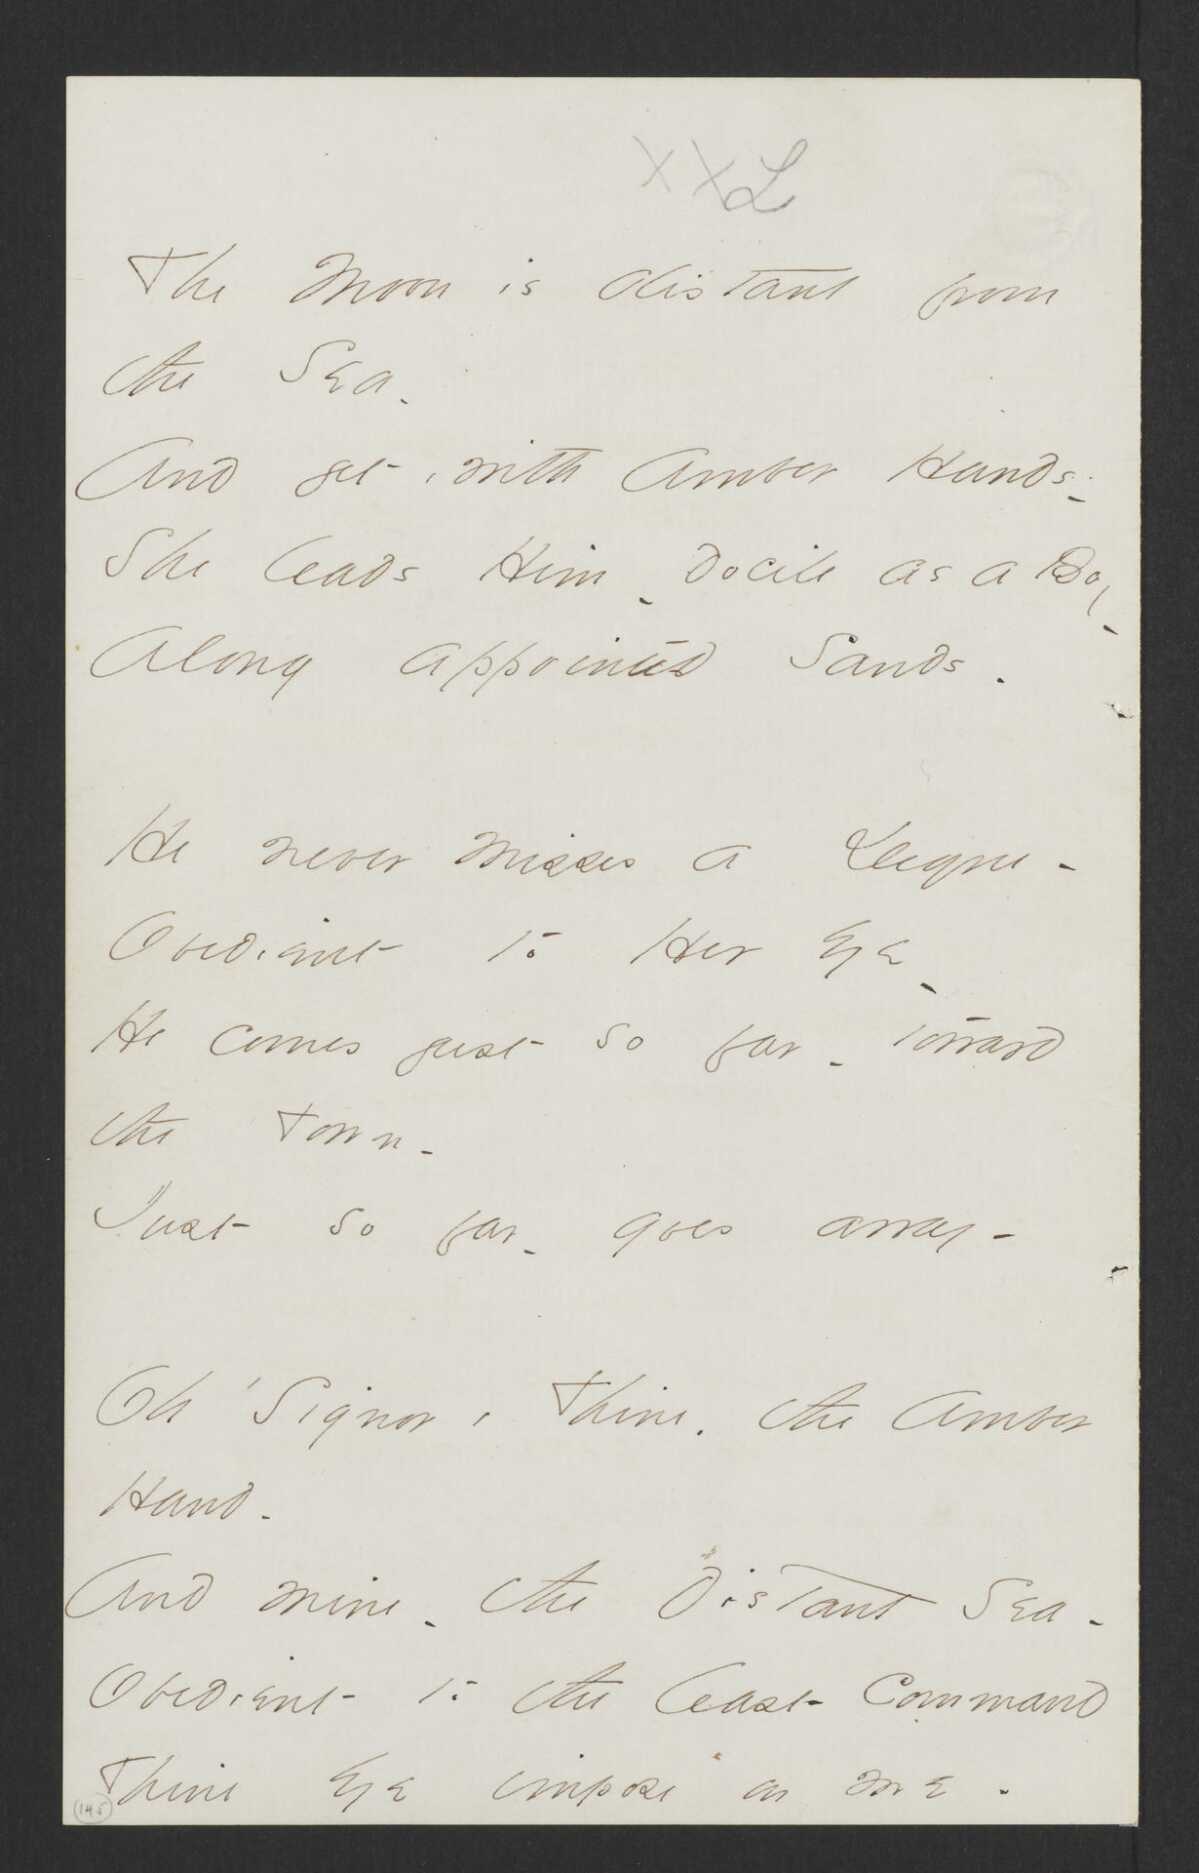 XXL
The Moon is distant from
the Sea -
And yet, with Amber Hands -
She leads Him - docile as a Boy -
Along appointed Sands -
He never misses a Degree -
Obedient to Her Eye -
He comes just so far - toward
the Town -
Just so far - goes away -
Oh, Signor, Thine, the Amber
Hand -
And mine - the distant Sea -
Obedient to the least command
Thine Eye impose on me -
(145)